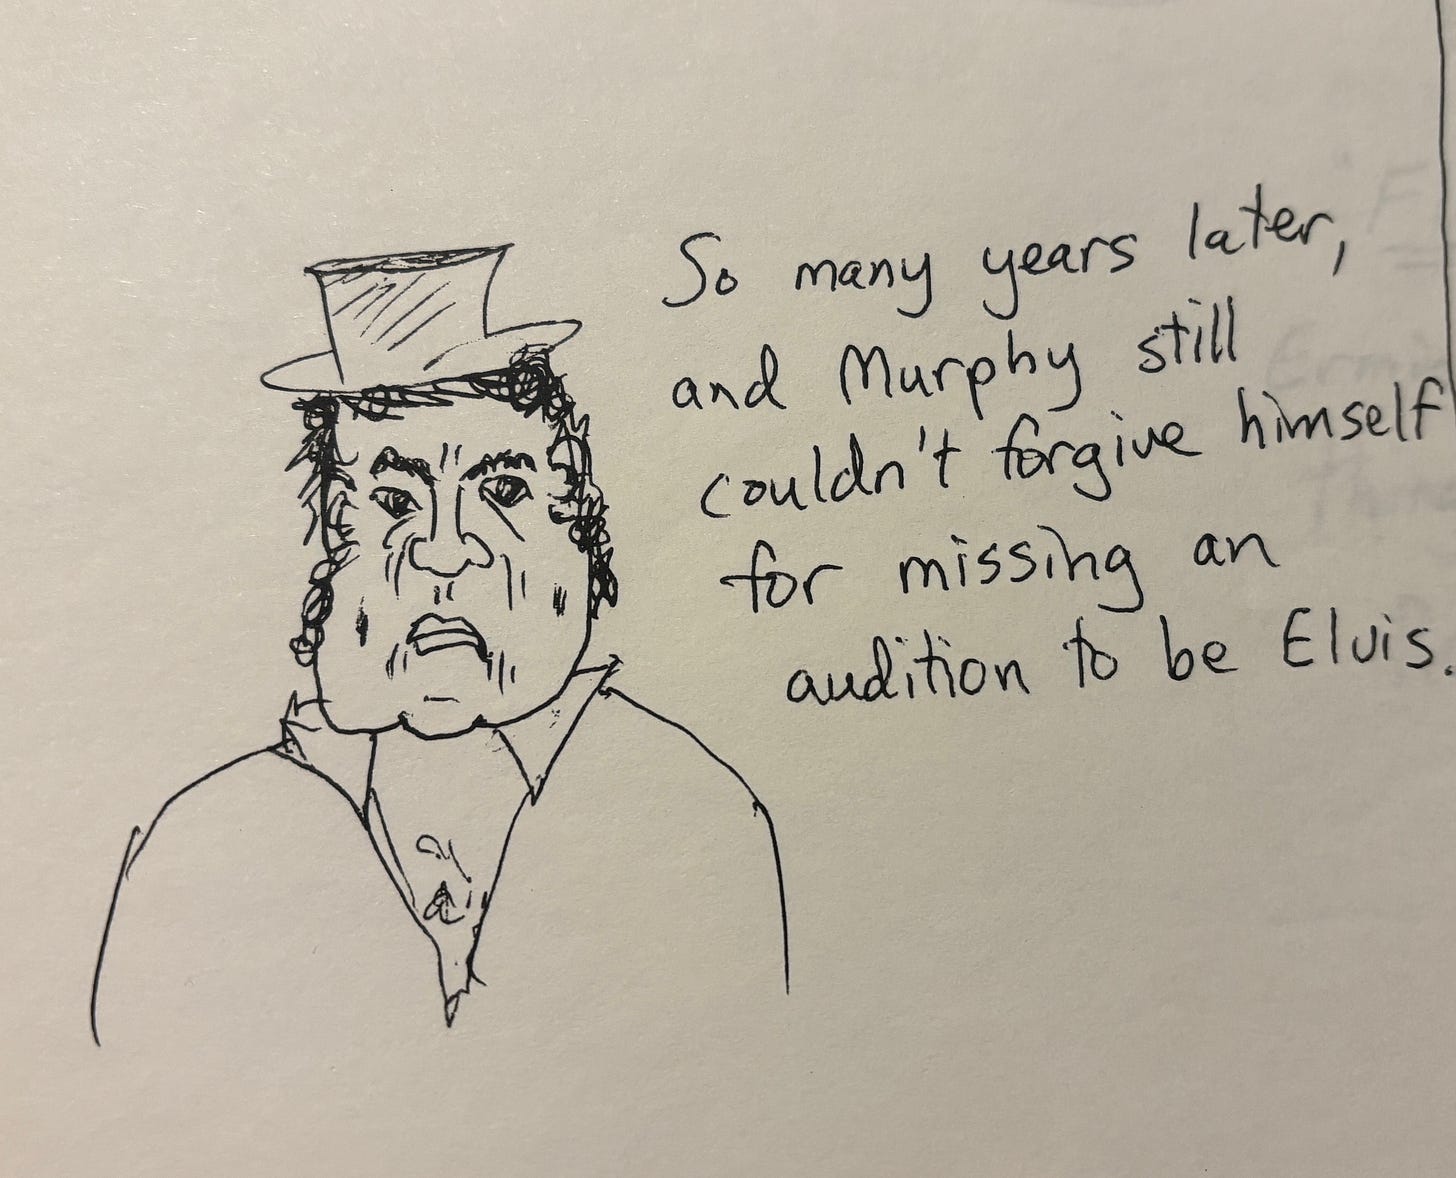 So many years later,
and Murphy still
couldn't forgive himself
for missing an
audition to be Elvis.